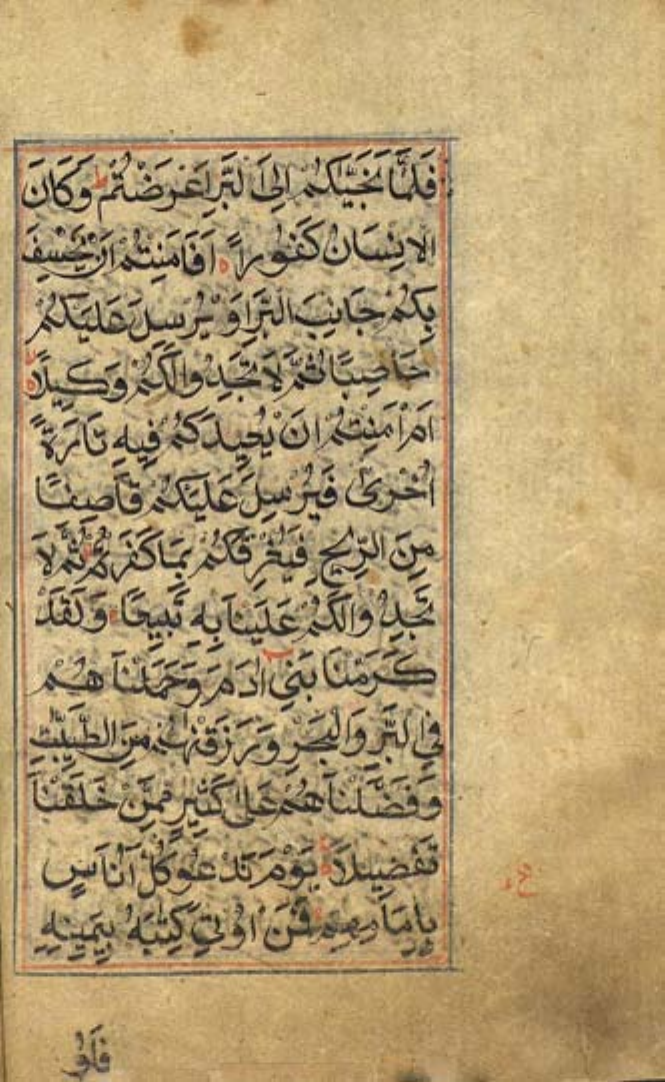 فَلَمَّا نَجَّيٰكُمْ اِلَى الْبَرِّ اَعْرَضْتُمْ ط وَكَانَ
الْاِنْسَانُ كَفُوْرًا اَفَاَمِنْتُمْ اَنْ يَخْسِفَ
بِكُمْ جَانِبَ الْبَرِّ اَوْ يُرْسِلَ عَلَيْكُمْ
حَاصِبًا ثُمَّ لَا تَجِدُوْا لَكُمْ وَكِيْلًا
اَمْ اَمِنْتُمْ اَنْ يُعِيْدَكُمْ فِيْهِ تَارَةً
اُخْرٰى فَيُرْسِلَ عَلَيْكُمْ قَاصِفًا
مِنَ الرِّيْحِ فَيُغْرِقَكُمْ بِمَا كَفَرْتُمْ ثُمَّ لَا
تَجِدُوْا لَكُمْ عَلَيْنَا بِهٖ تَبِيْعًا وَلَقَدْ
كَرَّمْنَا بَنِيْ اٰدَمَ وَحَمَلْنَاهُمْ
فِى الْبَرِّ وَالْبَحْرِ وَرَزَقْنٰهُمْ مِنَ الطَّيِّبٰتِ
وَفَضَّلْنَاهُمْ عَلٰى كَثِيْرٍ مِمَّنْ خَلَقْنَا
تَفْضِيْلًا يَوْمَ نَدْعُوْ كُلَّ اُنَاسٍ
بِاِمَامِهِمْ فَمَنْ اُوْتِيَ كِتٰبَهٗ بِيَمِيْنِهٖ
ع
فَاُو